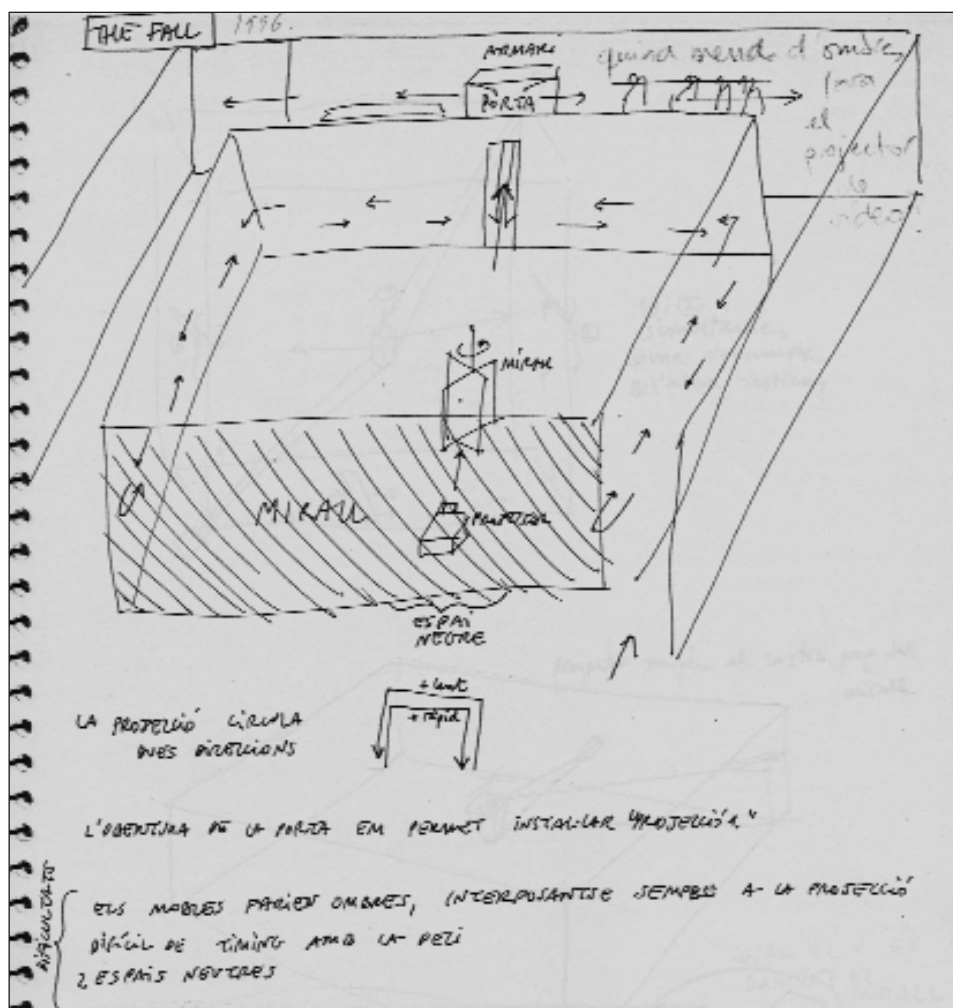 THE FALL 1996.
ARMARI
PORTA
quina merda d'ombres
para
el
projector
de
video!
MIRALL
MIRALL
PROJECTOR
ESPAI
NEUTRE
+ lent
+ ràpid
LA PROJECCIÓ CIRCULA
DUES DIRECCIONS
L'OBERTURA DE LA PORTA EM PERMET INSTAL·LAR "PROJECCIÓ 2"
DIFICULTATS
ELS MOBLES FARIEN OMBRES, INTERPOSANTSE SEMPRE A LA PROJECCIÓ
DIFÍCIL DE TIMING AMB LA PELI
2 ESPAIS NEUTRES